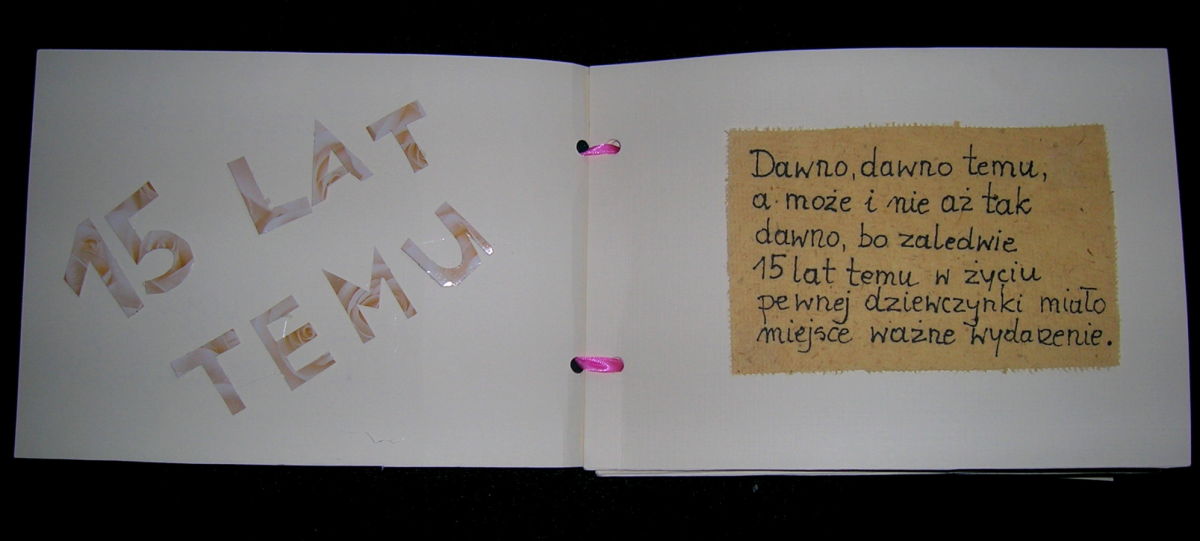 15 LAT
TEMU
Dawno, dawno temu,
a może i nie aż tak
dawno, bo zaledwie
15 lat temu w życiu
pewnej dziewczynki miało
miejsce ważne wydarzenie.